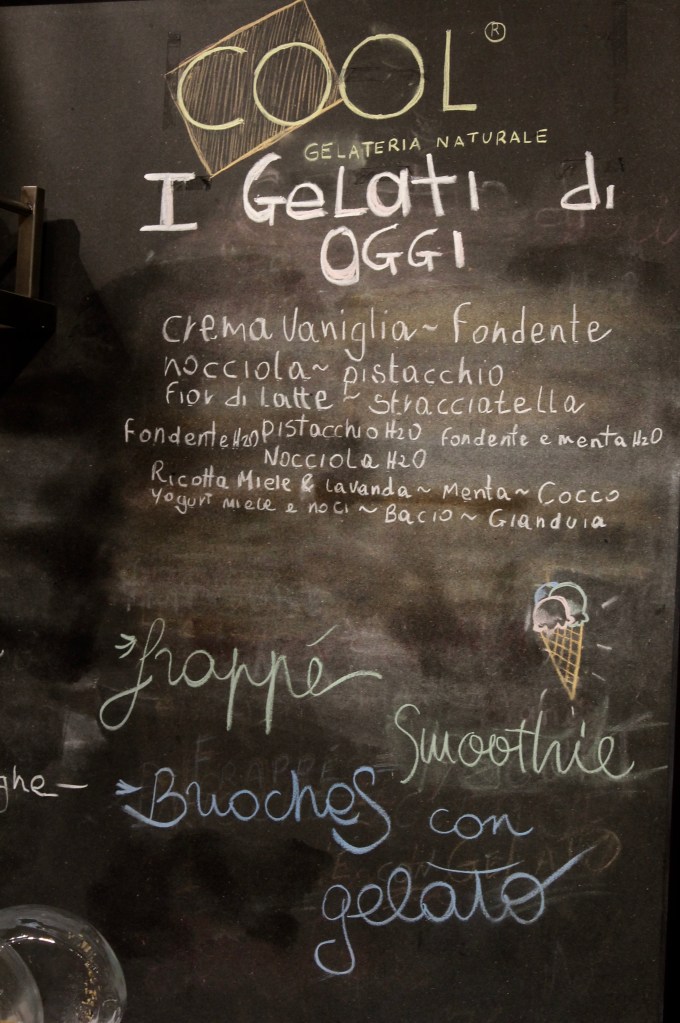 COOL®
GELATERIA NATURALE
I GeLati di
OGGI
crema Vaniglia~ Fondente
nocciola~ pistacchio
Fior di Latte ~ stracciatella
Fondente H2O Pistacchio H2O Fondente e menta H2O
Nocciola H2O
Ricotta Miele & Lavanda ~ Menta ~ Cocco
Yogurt miele e noci ~ Bacio ~ Gianduia
frappé
Smoothie
ghe-
Brioches con
gelato